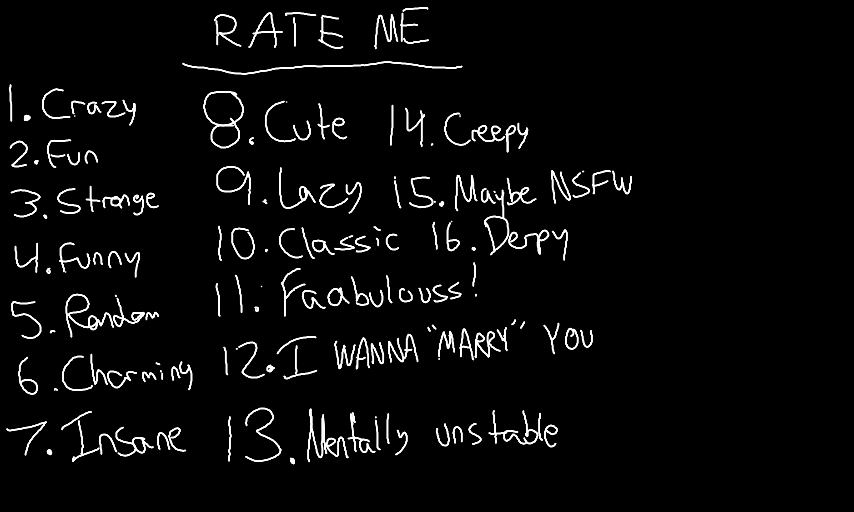 RATE ME
1. Crazy
2. Fun
3. Strange
4. Funny
5. Random
6. Charming
7. Insane
8. Cute
9. Lazy
10. Classic
11. Faabulouss!
12. I WANNA "MARRY" YOU
13. Mentally unstable
14. Creepy
15. Maybe NSFW
16. Derpy